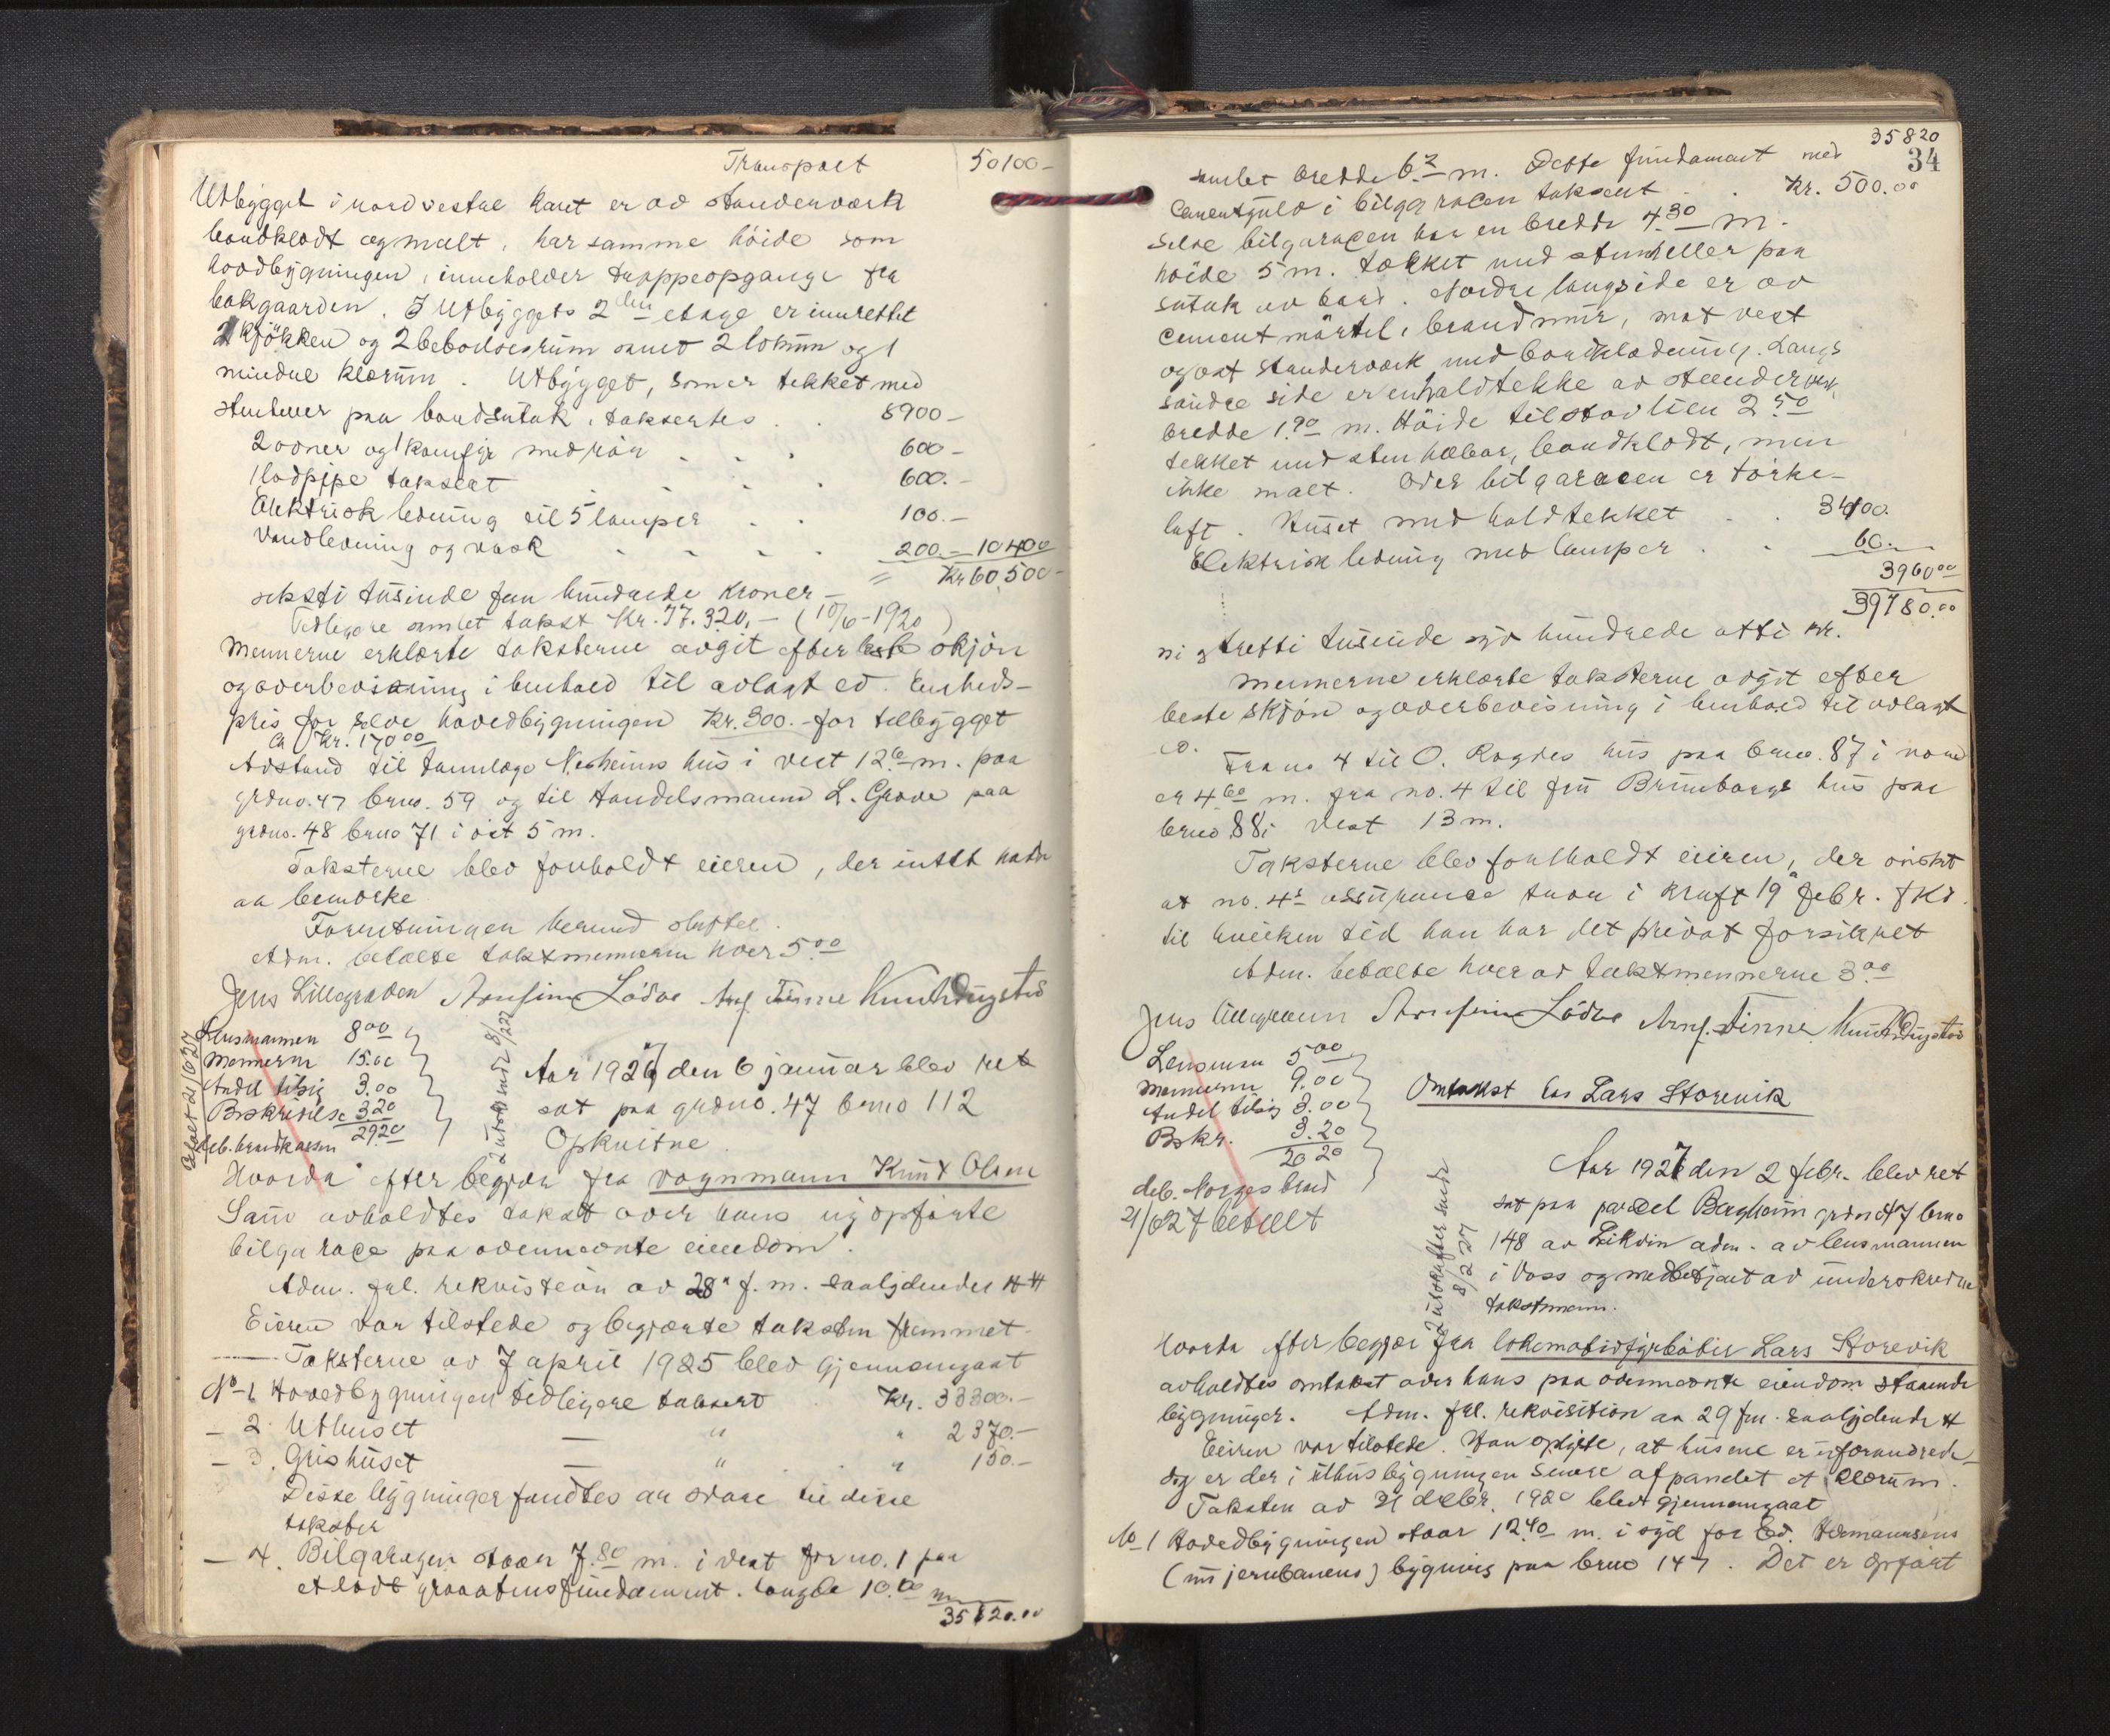 Transport 50100 -
Utbygget i nordvestre kant er av standerværk
bordklædt og malt, har samme høide som
hovdbygningen, inneholder trappeopgange fra
bakgaarden. I Utbyggets 2den etage er innrettet
2 kjøkken og 2 beboelsesrum samt 2 lokrum og 1
mindre klærum. Utbygget, som er tekket med
stenhever paa bordsutak, taksertes . . 8900 -
2 ovner og 1 komfyr med rør . . . 600 -
1 lodpipe taksert . . . . 600. -
Elektrisk ledning til 5 lamper . . 100. -
Vandledning og vask . . . . 200. - 10400
= Kr 60,500 -
seksti tusinde fem hundrede kroner -
Tidligere samlet takst Kr. 77.320. - (10/6 - 1920)
Mennerne erklærte taksterne avgit efter beste skjøn
og overbevisning i henhold til avlagt ed. Enheds-
pris for selve hovedbygningen Kr. 300. - for tilbygget
ca Kr. 170 00
Avstand til tannlæge Nesheims hus i vest 12.60 m. paa
grdno. 47 brno. 59 og til Handelsmann L. Grove paa
grdno. 48 brno 71 i øst 5 m.
Taksterne blev forholdt eieren, der intet hadde
aa bemerke
Forretningen hermed sluttet.
Adm. betalte takstmennerne hver 5.00
Jens Lillegraven Arnfinn Lødve Arnf. Finne Knut Dugstad
Lensmannen 8 00
Mennerne 15.00
Andel tilsig 3.00
Beskrivelse 3 20
29 20
deb. brandkassen
Betalt 21/6 27
2 utskr. sendt 8/1 27
Aar 1927 den 6 januar blev ret
sat paa grdno. 47 brno 112
Opkvitne
Hvorda efter begjær fra vognmann Knut Olsen
Saue avholdtes takst over hans nyopførte
bilgarage paa ovennevnte eiendom.
Adm. frl. rekvisition av 28de f. m. saalydende: ##
Eieren var tilstede og begjærte taksten fremmet.
Taksterne av 7 april 1925 blev gjennemgaat
No 1 Hovedbygningen tidligere taksert . Kr. 33300. -
- 2. Uthuset — " " 2370. -
- 3. Grishuset — " . . " 150. -
Disse bygninger fandtes aa svare til disse
takster
- 4. Bilgaragen staar 7.80 m. i vest for no. 1 paa
et lødt graastensfundament. Længde 10.00 m
35820.00
35820
34
samlet bredde 6.2 m. Dette fundament med
Cementgulv i bilgaracen taksert . . Kr. 500.00
Selve bilgaracen har en bredde 4.30 m.
høide 5 m. tækket med stenheller paa
sutak av bord. Nordre langside er av
cement mørtel i brandmur, mot vest
og øst standerværk med bordklædning. Langs
søndre side er en haldtekke av standerværk
bredde 1.90 m. Høide til stavlien 2.50
tekket med sten hæbar, bordklædt, men
ikke malt. Over bilgaracen er tørke-
loft. Huset med haldtekket . . 3400.
Elektrisk ledning med lamper . . 60. -
3960 00
39780.00
ni og tretti tusinde syv hundrede otti kr.
Mennerne erklærte taksterne avgit efter
beste skjøn og overbevisning i henhold til avlagt
ed.
Fra no 4 til O. Rogdes hus paa brno. 87 i nord
er 4.60 m. fra no. 4 til fru Brunborgs hus paa
brno 88 i vest 13 m.
Taksterne blev forholdt eieren, der ønsket
at no. 4s assurance traa i kraft 19de febr. fkd.
til hvilken tid han har det privat forsikret
Adm. betalte hver av takstmennerne 3 00
Jens Lillegraven Arnfinn Lødve Arnf. Finne Knut Dugstad
Lensmann 5 00
Mennerne 9.00
Andel tilsig 3.00
Bskr. 3.20
20 20
deb. Norges brand
21/6 27 betalt
Omtakst hos Lars Storevik
2 utskrifter sendt
8/2 27
Aar 1927 den 2 febr. blev ret
sat paa parcel Bergheim grdno 47 brno
148 av Lekvin adm. av lensmannen
i Voss og medbetjent av underskrevne
takstmenn.
Hvorda efter begjær fra lokomotivfyrbøter Lars Storevik
avholdtes omtakst over hans paa ovennevnte eiendom staaende
bygninger. Adm. frl. rekvisition av 29 f.m. saalydende #
Eieren var tilstede. Han oplyste, at husene er uforandrede
dog er der i uthusbygningen senere afpanelt et klærum.
Taksten av 21 decbr. 1920 blev gjennemgaat
No 1 Hovedbygningen staar 12.40 m. i syd for Ed. Hermannsens
(nu jernbanens) bygning paa brno 147. Det er opført